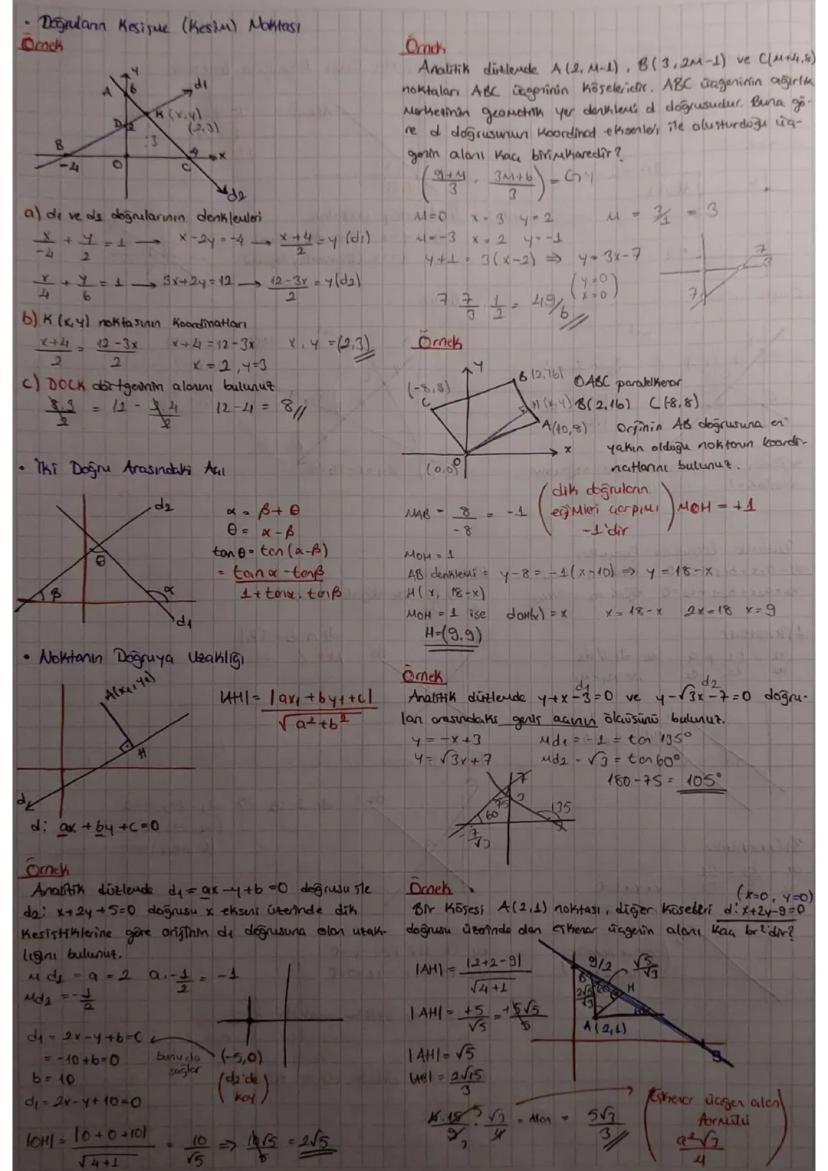 • Doğruların Kesişme (Kesim) Noktası
Örnek
y
A 6
d1
K(x,y)
(2,3)
D 2
3
B
-4
O
C
4
x
d2
a) d1 ve d2 doğrularının denklemleri
x/-4 + y/2 = 1 → x-2y=-4 → x+4/2 = y (d1)
x/4 + y/6 = 1 → 3x+2y=12 → 12-3x/2 = y (d2)
b) K(x,y) noktasının koordinatları
x+4/2 = 12-3x/2 x+4=12-3x x,y=(2,3)
x=2, y=3
c) DOCK dörtgeninin alanını bulunuz
12-4=8
• İki Doğru Arasındaki Açı
d2
θ
β
α
d1
α = β+θ
θ = α-β
tanθ = tan(α-β)
= tanα-tanβ
1+tanα.tanβ
• Noktanın Doğruya Uzaklığı
A(x1,y1)
H
d
|AH| = |ax1+by1+c|
√a²+b²
d: ax+by+c=0
Örnek
Analitik düzlemde d1=ax-y+b=0 doğrusu ile
d2: x+2y+5=0 doğrusu x ekseni üzerinde dik
kesiştiklerine göre orijinin d1 doğrusuna olan uzak-
lığını bulunuz.
md1=a=2 a.-1/2=-1
md2=-1/2
d1=2x-y+b=0
=-10+b=0 bunu da (-5,0)
sağlar
b=10 (d2'de
koy)
d1=2x-y+10=0
|OH| = |0+0+10|/√4+1 = 10/√5 ⇒ 10√5/5 = 2√5
Örnek
Analitik düzlemde A(2,M-1), B(3,2M-1) ve C(M+4,8)
noktaları ABC üçgeninin köşeleridir. ABC üçgeninin ağırlık
merkezinin geometrik yer denklemi d doğrusudur. Buna gö-
re d doğrusunun koordinat eksenleri ile oluşturduğu üç-
genin alanı kaç birimkaredir?
(9+M/3, 3M+6/3) = G
M=0 x=3 y=2 M=3/1=3
M=-3 x=2 y=-1
y+1=3(x-2) ⇒ y=3x-7
(y=0
x=0)
7.7/3.1/2=49/6
7/3
7
Örnek
y
B(2,16)
(-8,8)
C
H(x,y)
A(10,8)
x
(0,0)
O
OABC paralelkenar
B(2,16) C(-8,8)
Orjinin AB doğrusuna en
yakın olduğu noktanın koordi-
natlarını bulunuz.
MAB = 8/-8 = -1 (dik doğruların
eğimleri çarpımı
-1'dir) MOH=+1
MOH=1
AB denklemi= y-8=-1(x-10) ⇒ y=18-x
H(x,18-x)
MOH=1 ise dOH(x)=x x=18-x 2x=18 x=9
H=(9,9)
Örnek
d1 d2
Analitik düzlemde y+x-3=0 ve y-√3x-7=0 doğru-
ları arasındaki geniş açının ölçüsünü bulunuz.
y=-x+3 md1=-1=tan 135°
y=√3x+7 md2=√3=tan60°
180-75=105°
7
75
3
60
135
-7/√3
Örnek
(x=0, y=0)
Bir köşesi A(2,1) noktası, diğer köşeleri d: x+2y-9=0
doğrusu üzerinde olan eşkenar üçgenin alanı kaç br²'dir?
|AH| = |2+2-9|/√4+1
|AH| = +5/√5 = +5√5/5
|AH|=√5
|AB|=2√15/3
9/2
√5/√3
B
H
A(2,1)
9
√3/4 = Alan = 5√3/3
(Eşkenar üçgen alan
formülü
a²√3/4)